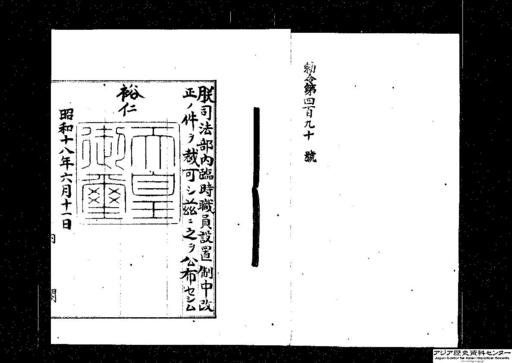 勅令第四百九十號
朕司法部內臨時職員設置制中改
正ノ件ヲ裁可シ茲ニ之ヲ公布セシム
裕仁
天皇
御璽
昭和十八年六月十一日
アジア歴史資料センター
Japan Center for Asian Historical Records